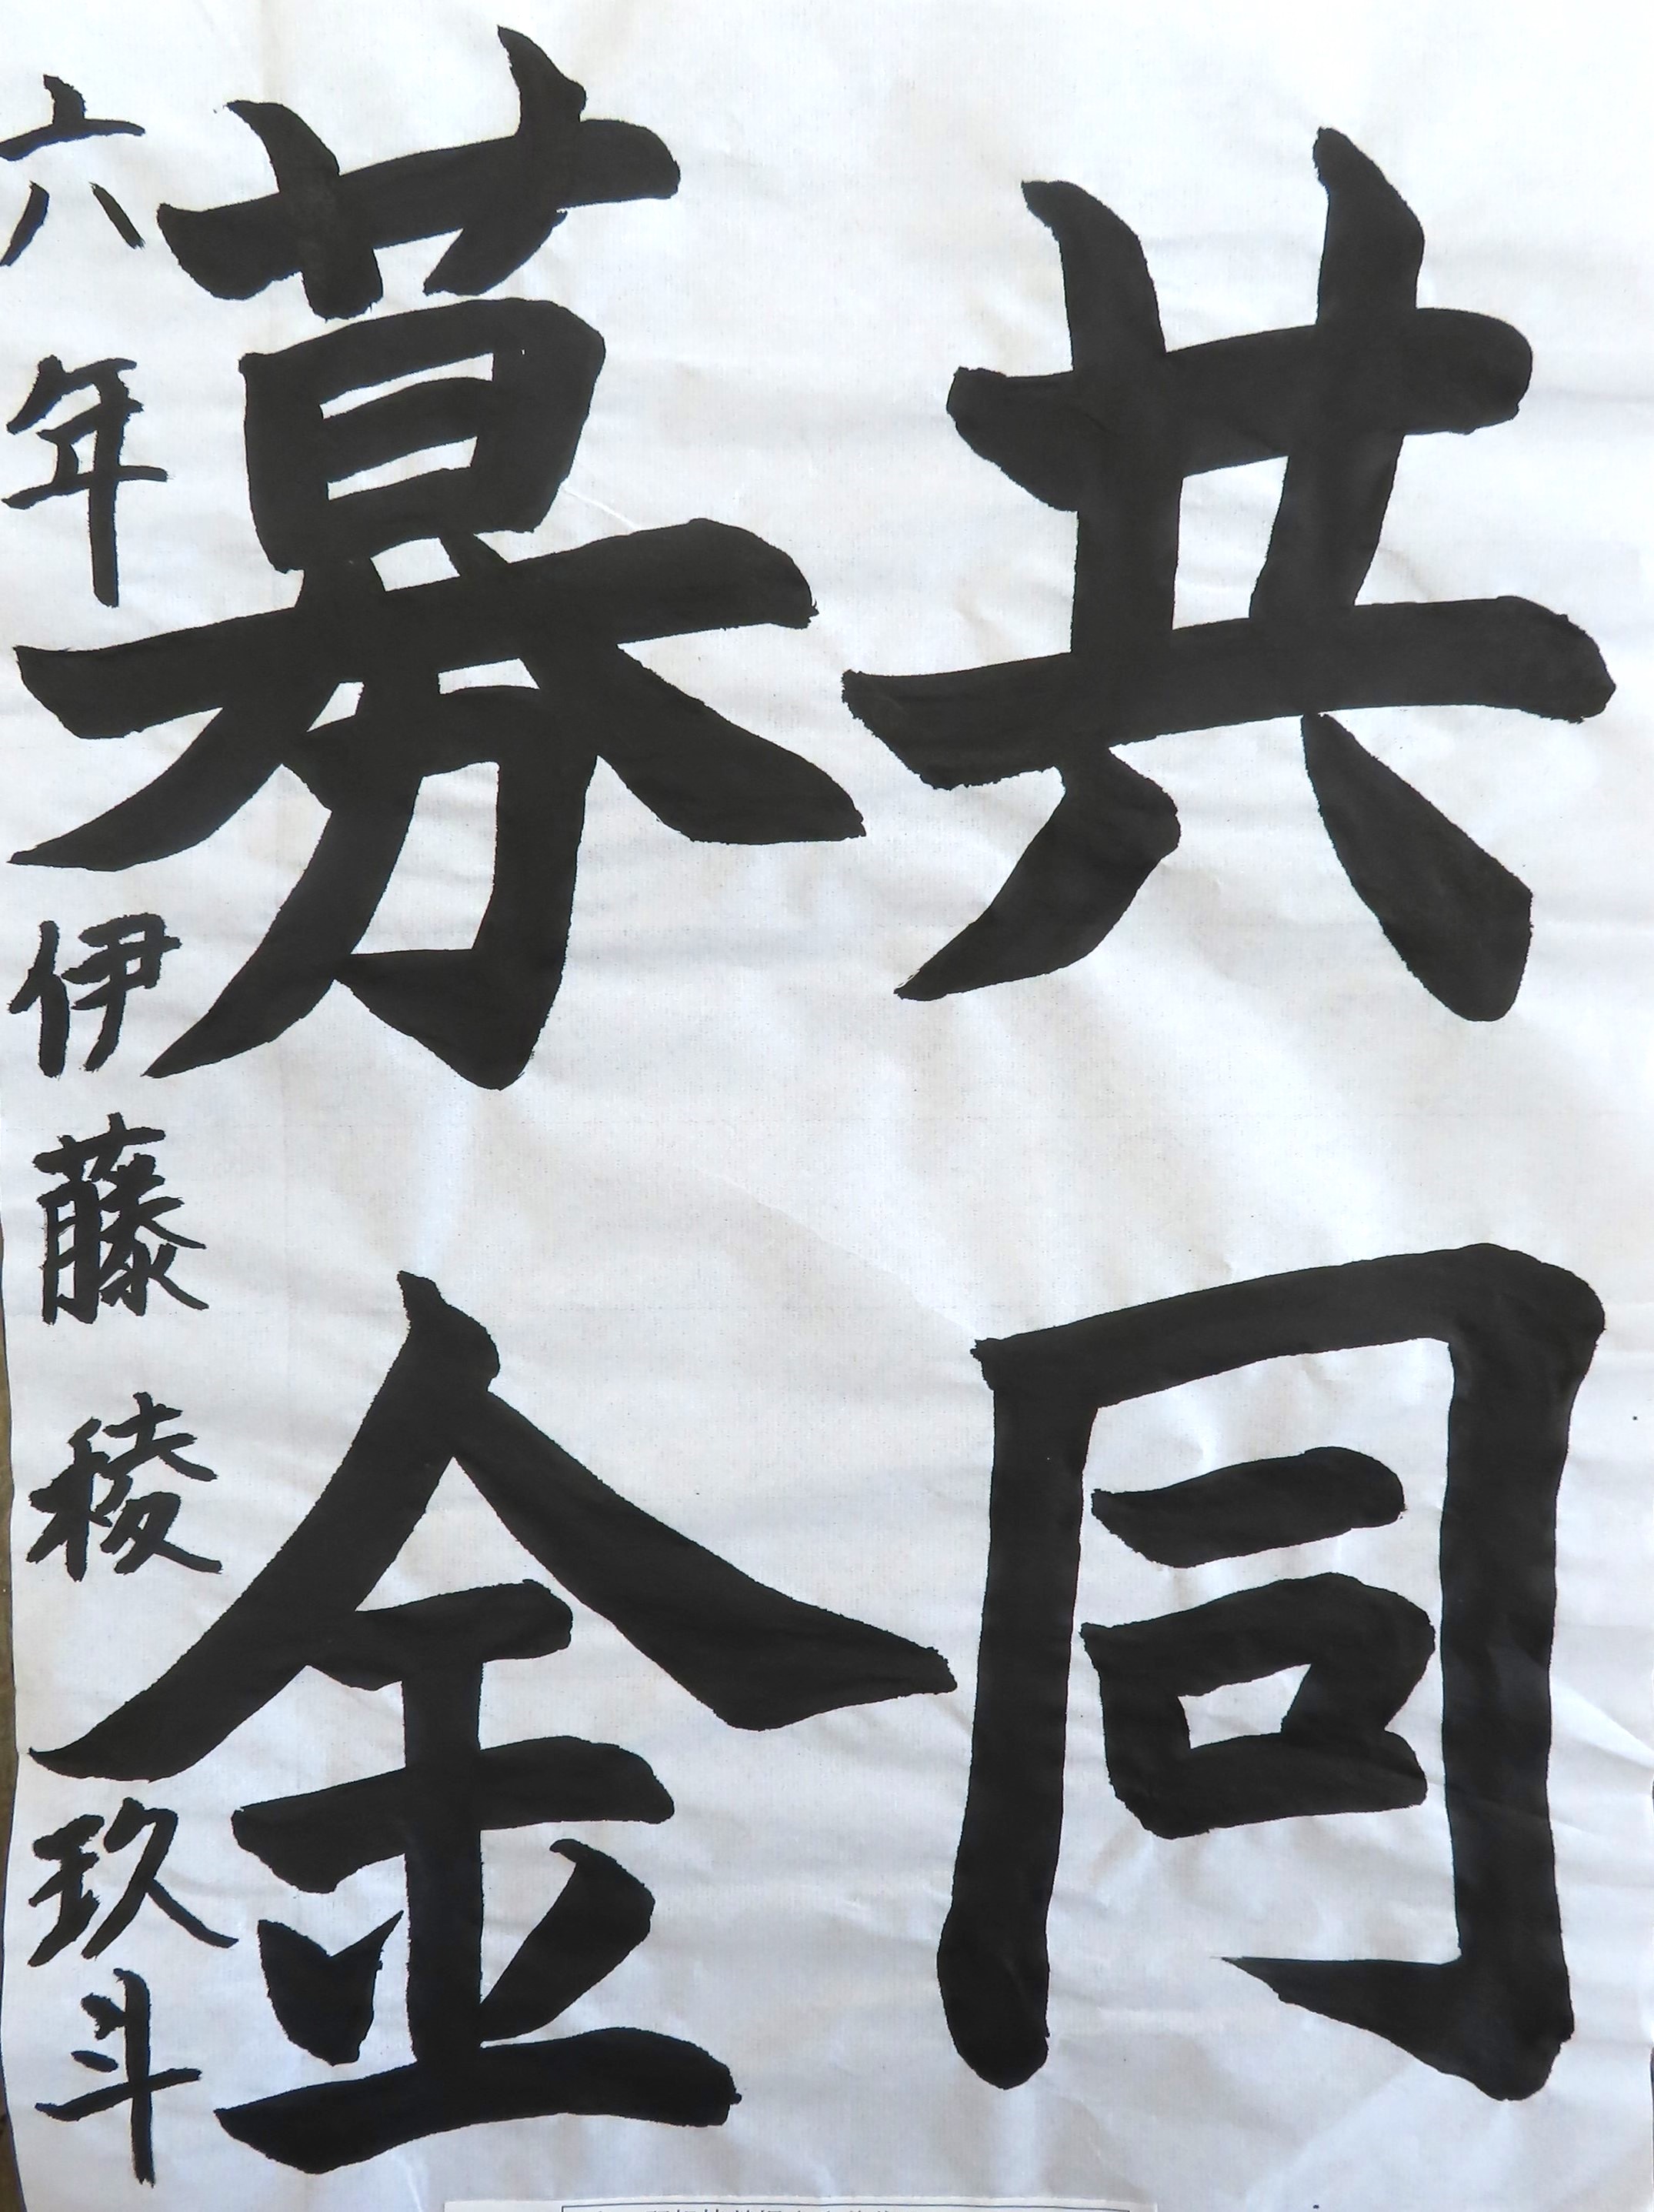 共同
募金
六年 伊藤稜玖斗